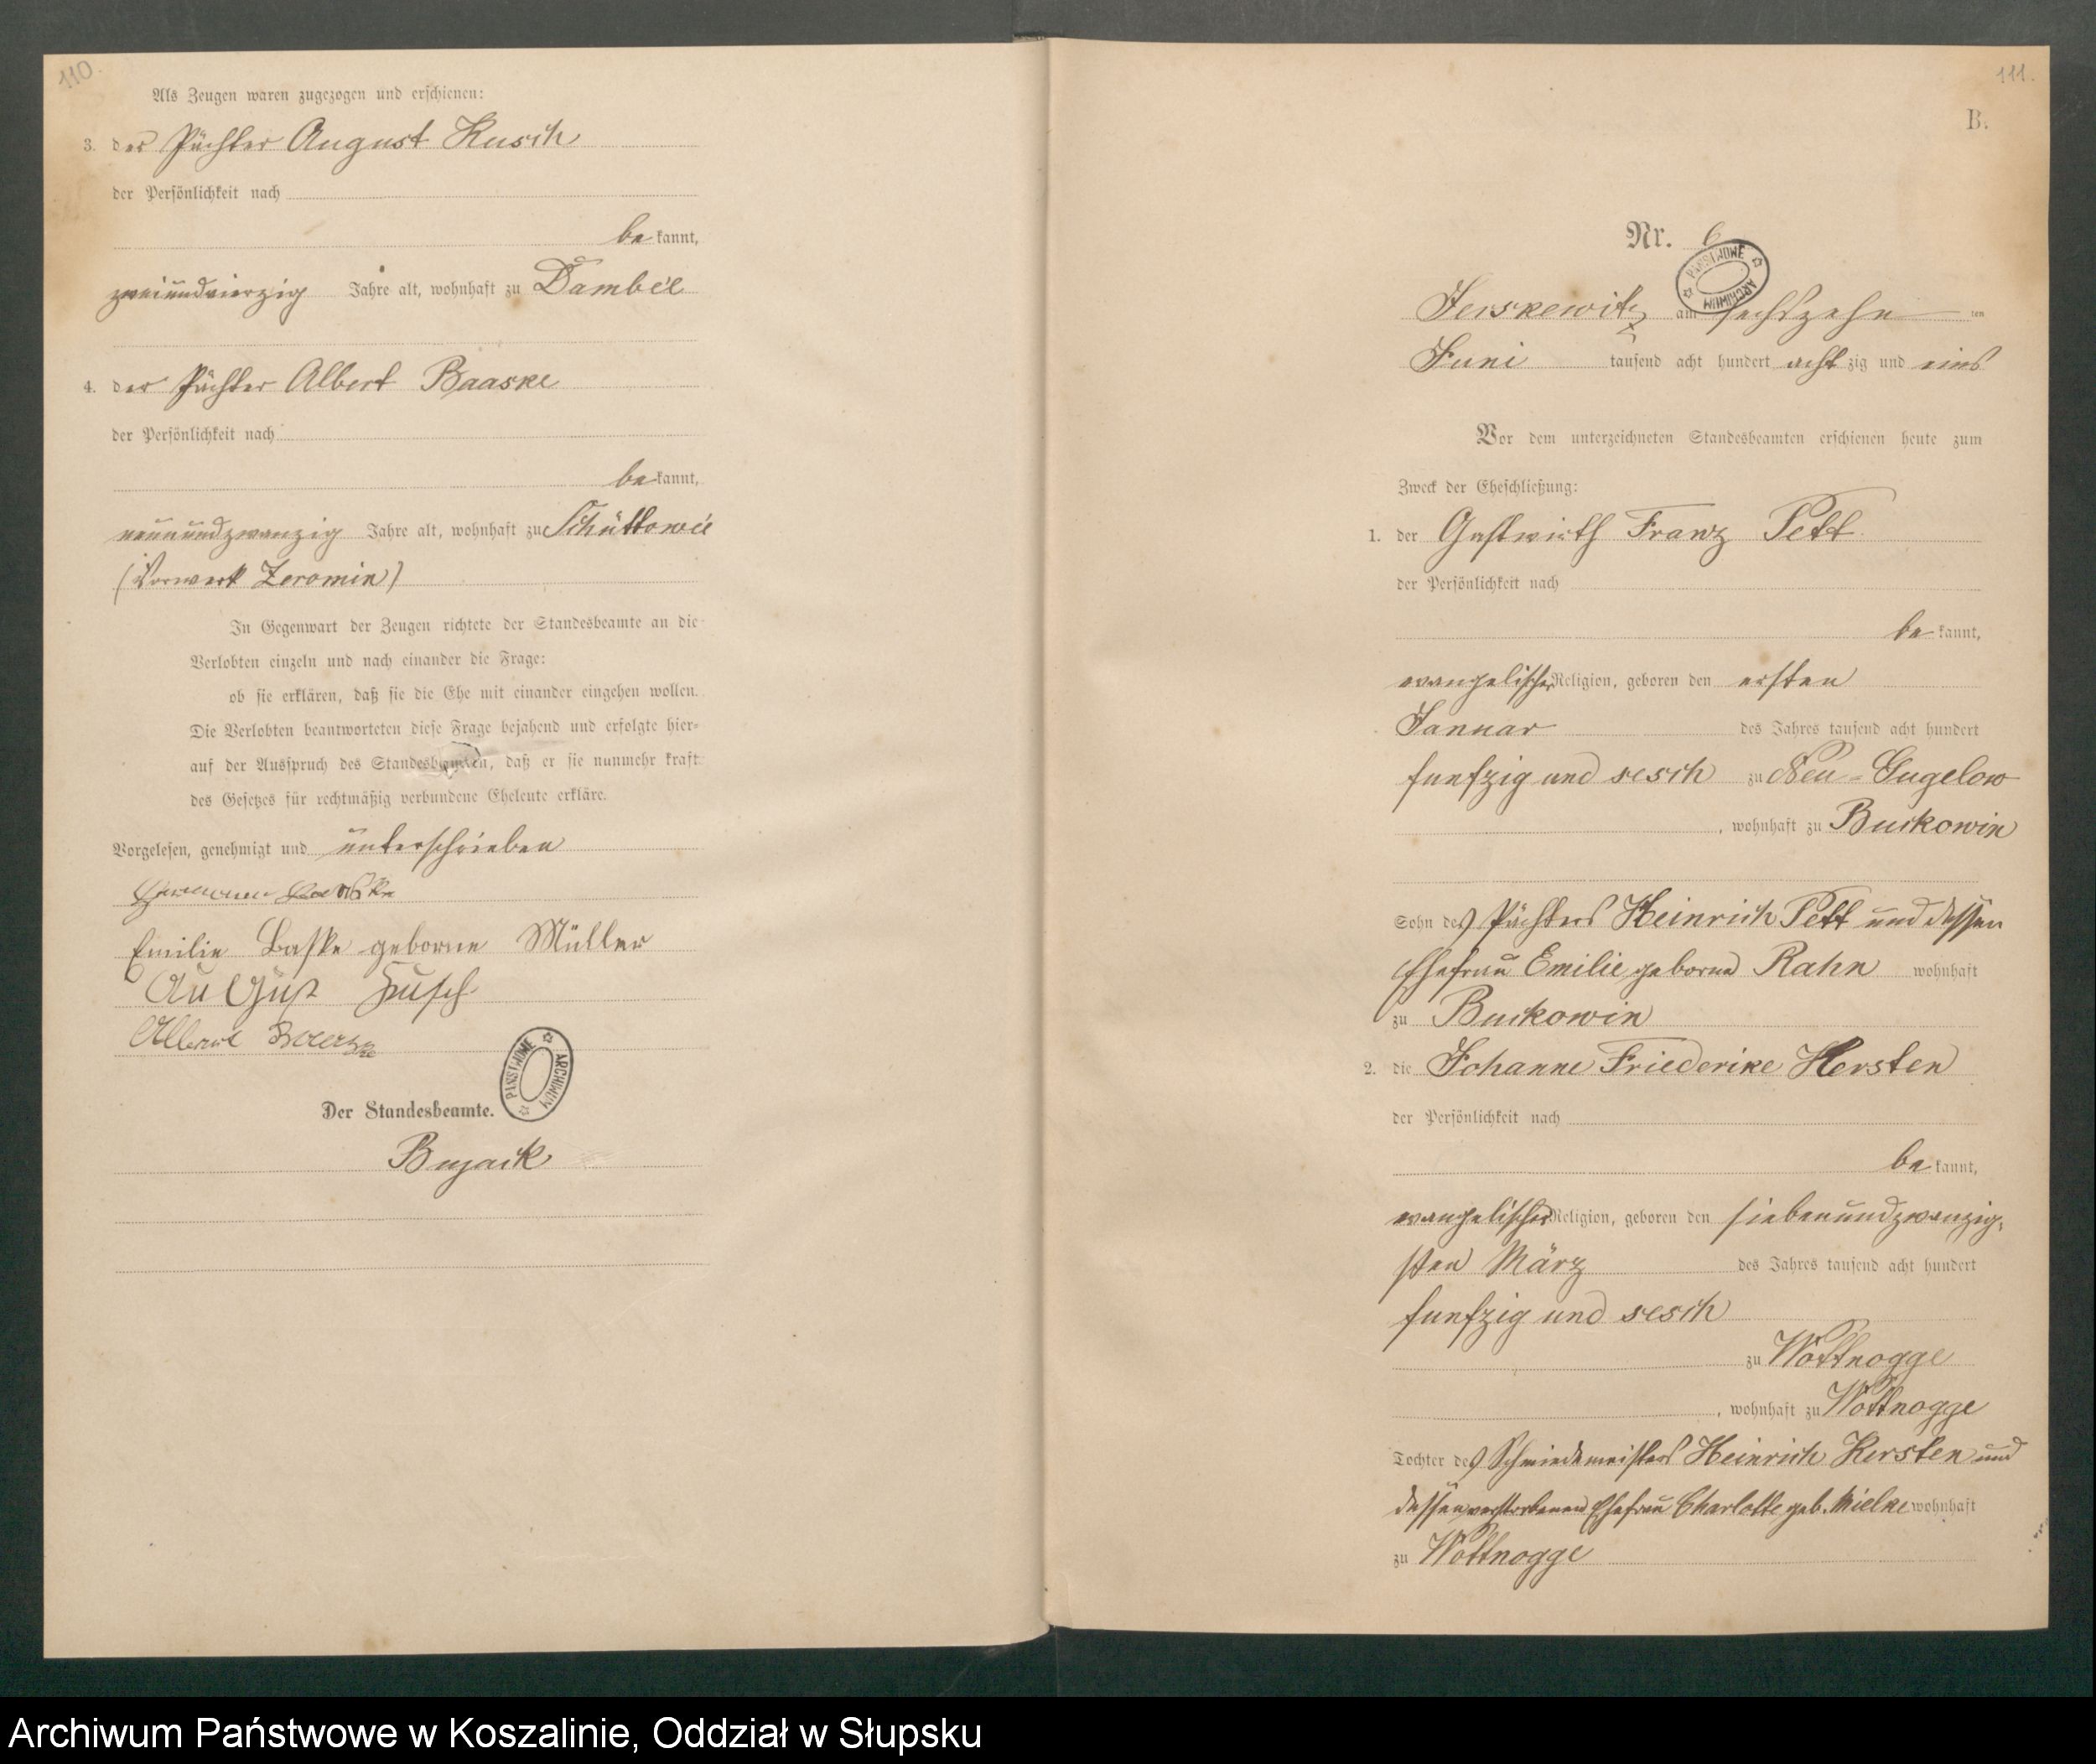 110.
Als Zeugen waren zugezogen und erschienen:
3. der Pächter August Kusch
der Persönlichkeit nach
be kannt,
zweiundvierzig Jahre alt, wohnhaft zu Dambee
4. der Pächter Albert Baaske
der Persönlichkeit nach
be kannt,
neunundzwanzig Jahre alt, wohnhaft zu Schüttowie
(Vorwerk Zeromin)
In Gegenwart der Zeugen richtete der Standesbeamte an die
Verlobten einzeln und nach einander die Frage:
ob sie erklären, daß sie die Ehe mit einander eingehen wollen.
Die Verlobten beantworteten diese Frage bejahend und erfolgte hier-
auf der Ausspruch des Standesbeamten, daß er sie nunmehr kraft
des Gesetzes für rechtmäßig verbundene Eheleute erkläre.
Vorgelesen, genehmigt und unterschrieben
Hermann
Emilie Baske geborne Müller
August Kusch
Albert
PAŃSTWOWE ARCHIWUM
Der Standesbeamte.
Bujack
111.
B.
Nr. 6
PAŃSTWOWE ARCHIWUM
Jerskewitz am sechszehn ten
Juni tausend acht hundert acht zig und eins
Vor dem unterzeichneten Standesbeamten erschienen heute zum
Zweck der Eheschließung:
1. der Gastwirth Franz Pett
der Persönlichkeit nach
be kannt,
evangelischer Religion, geboren den ersten
Januar des Jahres tausend acht hundert
funfzig und sesch zu Neu-Gugelow
, wohnhaft zu Buckowin
Sohn des Pächters Heinrich Pett und dessen
Ehefrau Emilie geborne Rahn wohnhaft
zu Buckowin
2. die Johanne Friederike Kersten
der Persönlichkeit nach
be kannt,
evangelischer Religion, geboren den siebenundzwanzig-
sten März des Jahres tausend acht hundert
funfzig und sesch
zu Wottnogge
, wohnhaft zu Wottnogge
Tochter des Schmiedemeisters Heinrich Kersten und
dessen verstorbenen Ehefrau Charlotte geb. Mielke wohnhaft
zu Wottnogge
Archiwum Państwowe w Koszalinie, Oddział w Słupsku